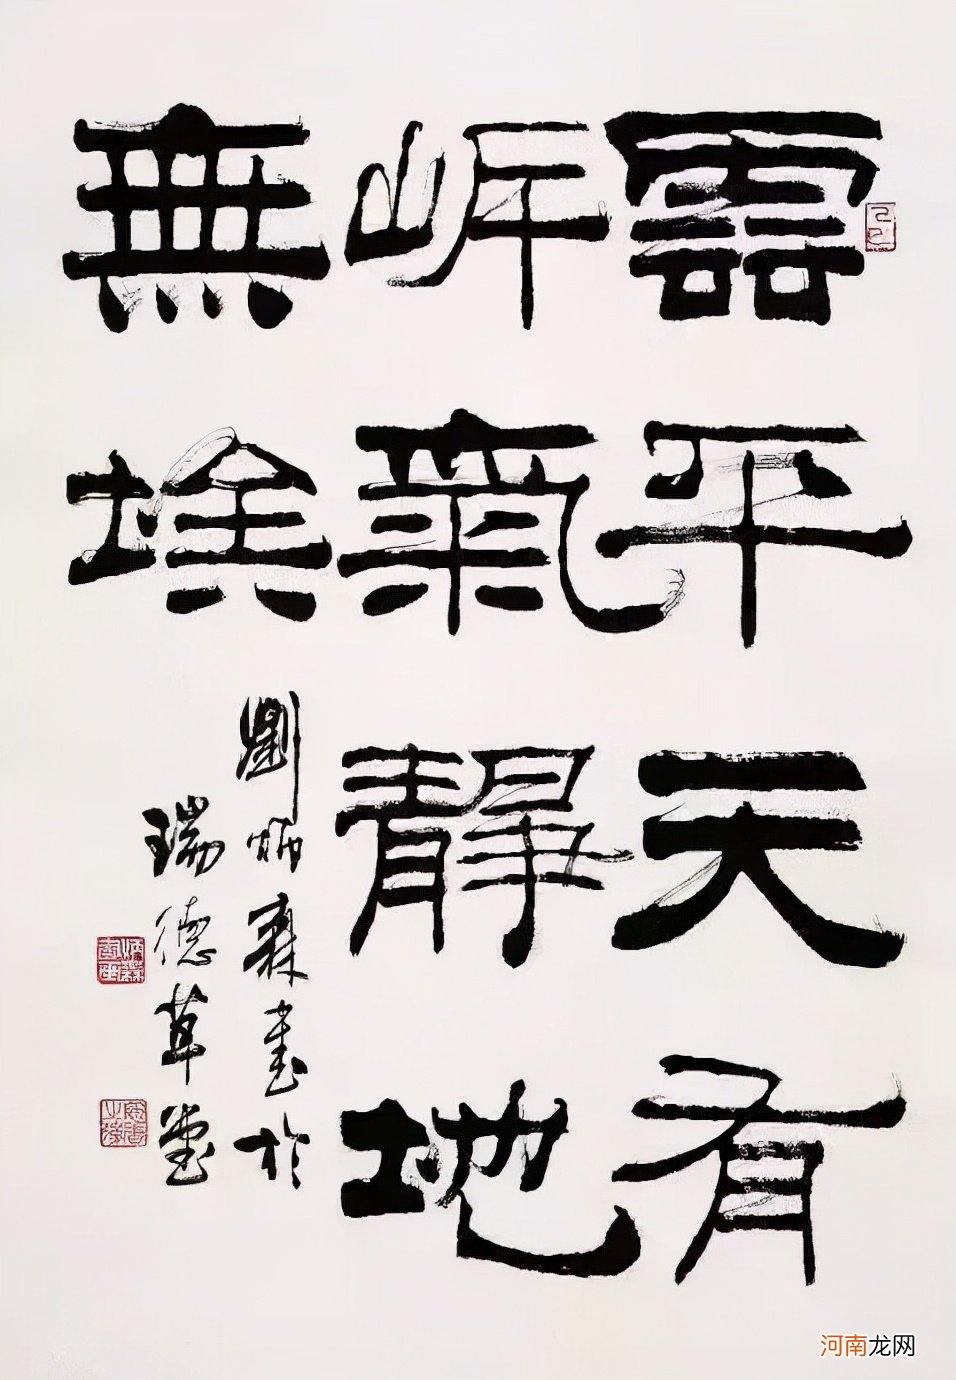 己巳
雲平天有
岸氣靜地
無埃
劉炳森書於
瑞德草堂
河南龙网